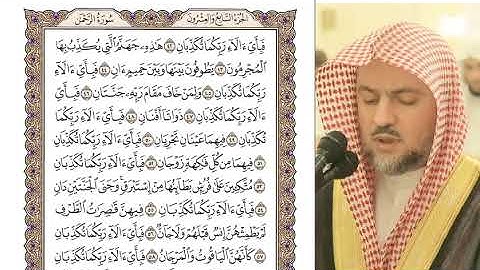 الجزء السابع والعشرون سورة الرحمن
فَبِأَيِّ ءَالَآءِ رَبِّكُمَا تُكَذِّبَانِ ٤٢ هَٰذِهِۦ جَهَنَّمُ ٱلَّتِي يُكَذِّبُ بِهَا
ٱلْمُجْرِمُونَ ٤٣ يَطُوفُونَ بَيْنَهَا وَبَيْنَ حَمِيمٍ ءَانٍ ٤٤ فَبِأَيِّ ءَالَآءِ
رَبِّكُمَا تُكَذِّبَانِ ٤٥ وَلِمَنْ خَافَ مَقَامَ رَبِّهِۦ جَنَّتَانِ ٤٦ فَبِأَيِّ ءَالَآءِ
رَبِّكُمَا تُكَذِّبَانِ ٤٧ ذَوَاتَآ أَفْنَانٍ ٤٨ فَبِأَيِّ ءَالَآءِ رَبِّكُمَا
تُكَذِّبَانِ ٤٩ فِيهِمَا عَيْنَانِ تَجْرِيَانِ ٥٠ فَبِأَيِّ ءَالَآءِ رَبِّكُمَا تُكَذِّبَانِ
٥١ فِيهِمَا مِن كُلِّ فَٰكِهَةٍ زَوْجَانِ ٥٢ فَبِأَيِّ ءَالَآءِ رَبِّكُمَا تُكَذِّبَانِ
٥٣ مُتَّكِـِٔينَ عَلَىٰ فُرُشٍۭ بَطَآئِنُهَا مِنْ إِسْتَبْرَقٍ ۚ وَجَنَى ٱلْجَنَّتَيْنِ دَانٍ
٥٤ فَبِأَيِّ ءَالَآءِ رَبِّكُمَا تُكَذِّبَانِ ٥٥ فِيهِنَّ قَٰصِرَٰتُ ٱلطَّرْفِ
لَمْ يَطْمِثْهُنَّ إِنسٌ قَبْلَهُمْ وَلَا جَآنٌّ ٥٦ فَبِأَيِّ ءَالَآءِ رَبِّكُمَا تُكَذِّبَانِ
٥٧ كَأَنَّهُنَّ ٱلْيَاقُوتُ وَٱلْمَرْجَانُ ٥٨ فَبِأَيِّ ءَالَآءِ رَبِّكُمَا تُكَذِّبَانِ